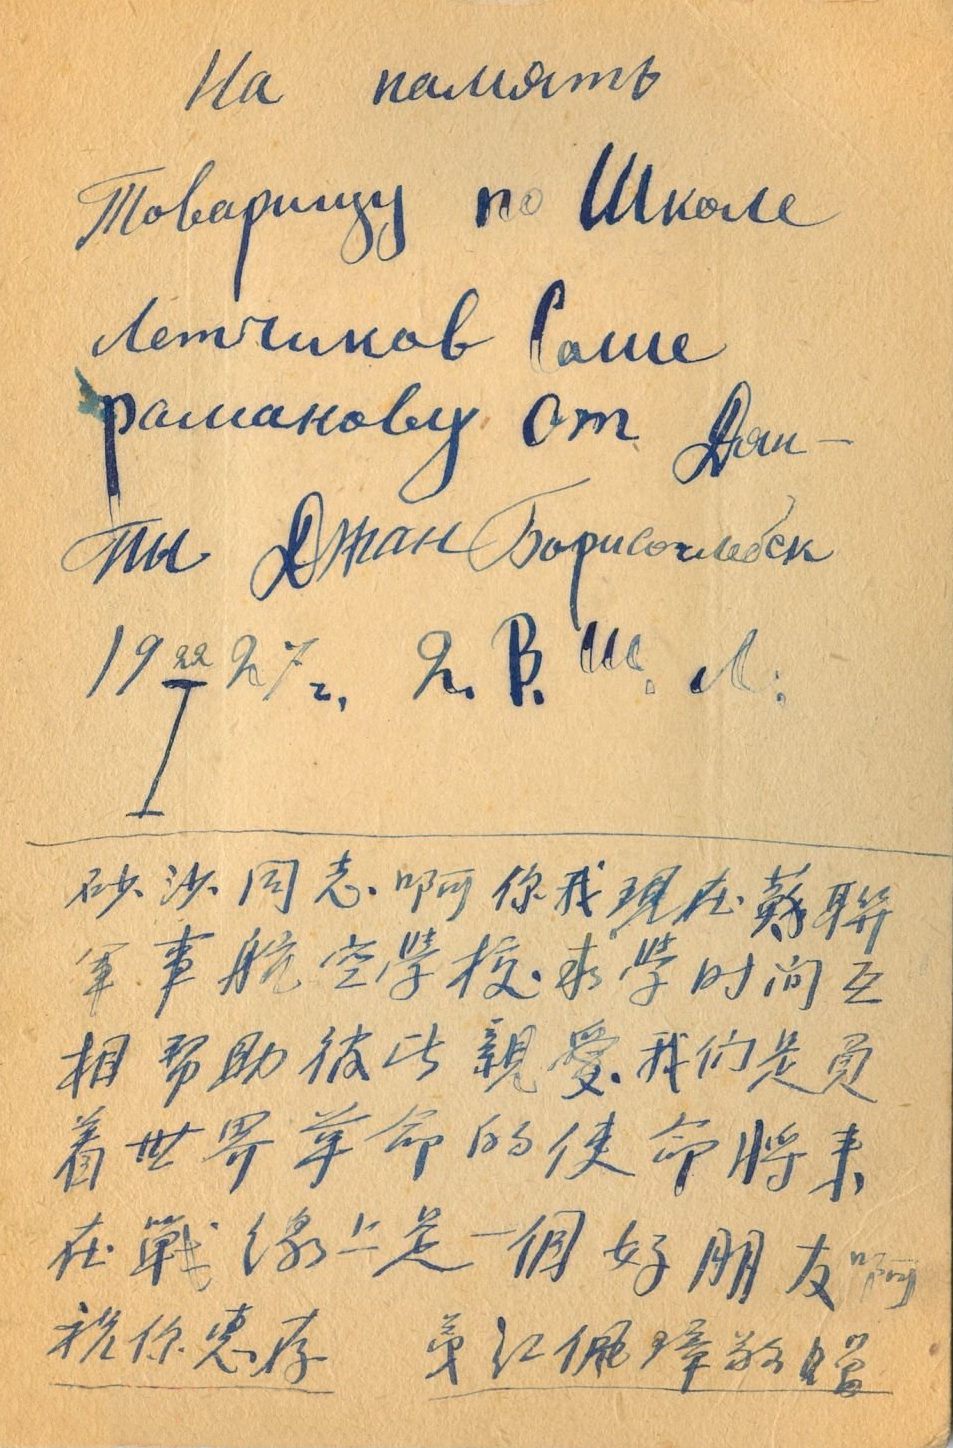 На память
Товарищу по Школе
Летчиков Саше
Рамакову от Дян-
ты Джан Борисоглебск
19 22/I 27 г. 2. В. Ш. Л.
砂沙同志啊你我現在蘇聯
軍事航空學校求學时间互
相帮助彼此親愛我们是負
着世界革命的使命將来
在戰線上是一個好朋友啊
祝你惠存 弟江佩璋敬贈